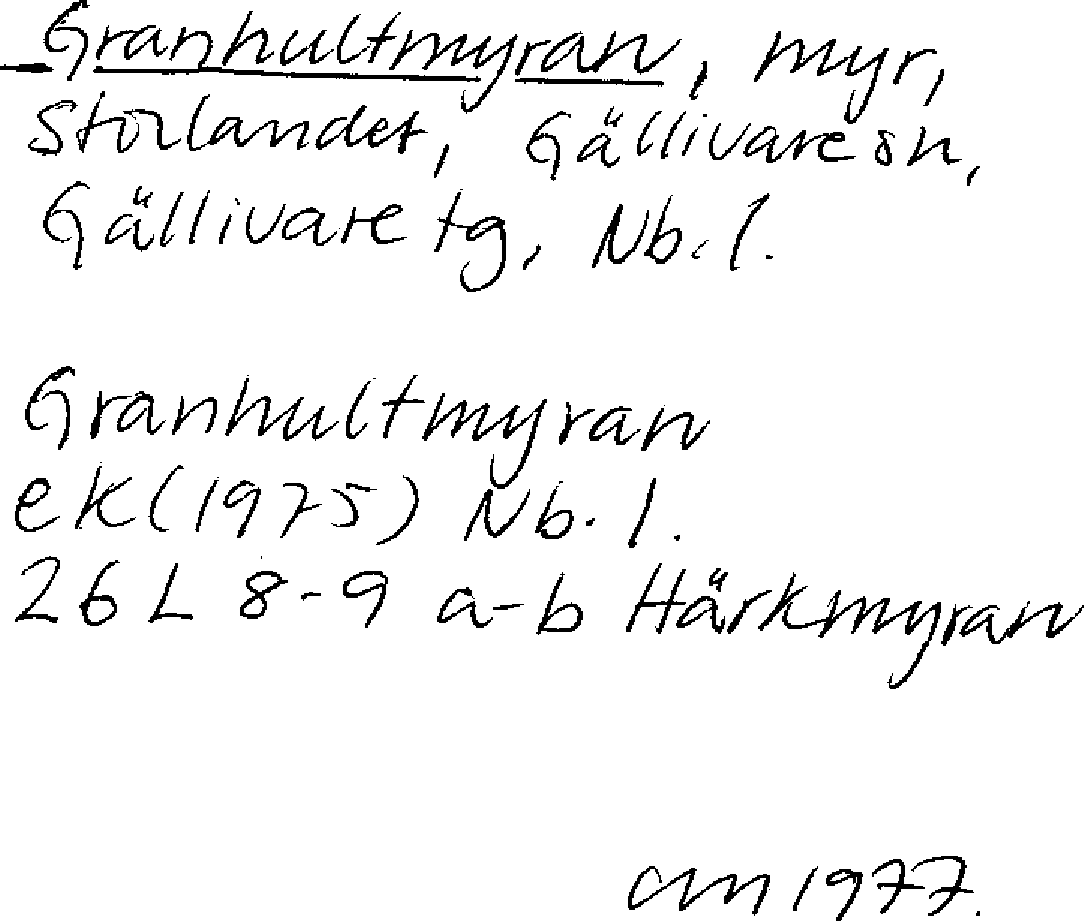 Granhultmyran, myr,
Storlandet, Gällivare sn,
Gällivare tg, Nb. l.
Granhultmyran
ek (1975) Nb. l.
26 L 8-9 a-b Härkmyran
1977.